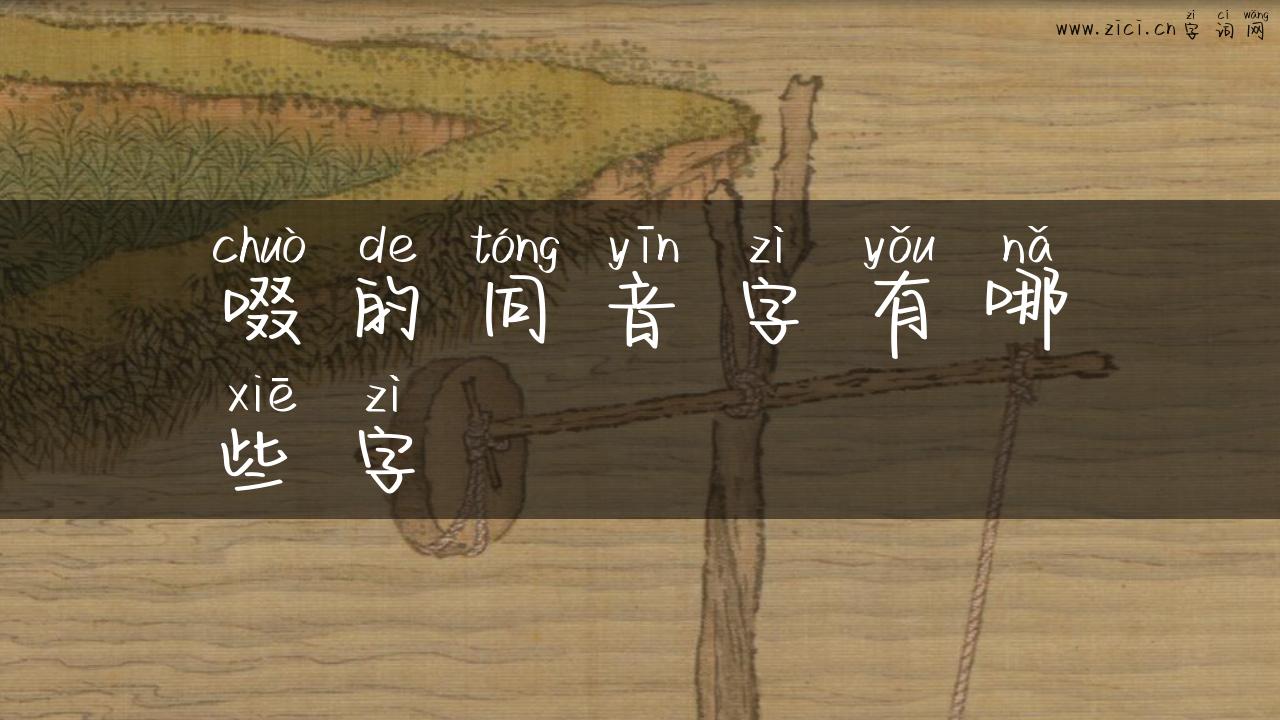 zì cí wǎng
www.zici.cn 字词网
chuò de tóng yīn zì yǒu nǎ
啜的同音字有哪
xiē zì
些字